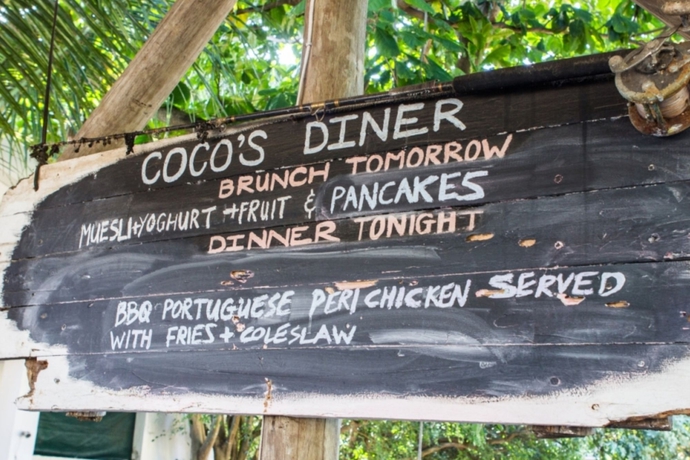 COCO'S DINER
BRUNCH TOMORROW
MUESLI+YOGHURT +FRUIT & PANCAKES
DINNER TONIGHT
BBQ PORTUGUESE PERI CHICKEN SERVED
WITH FRIES + COLESLAW